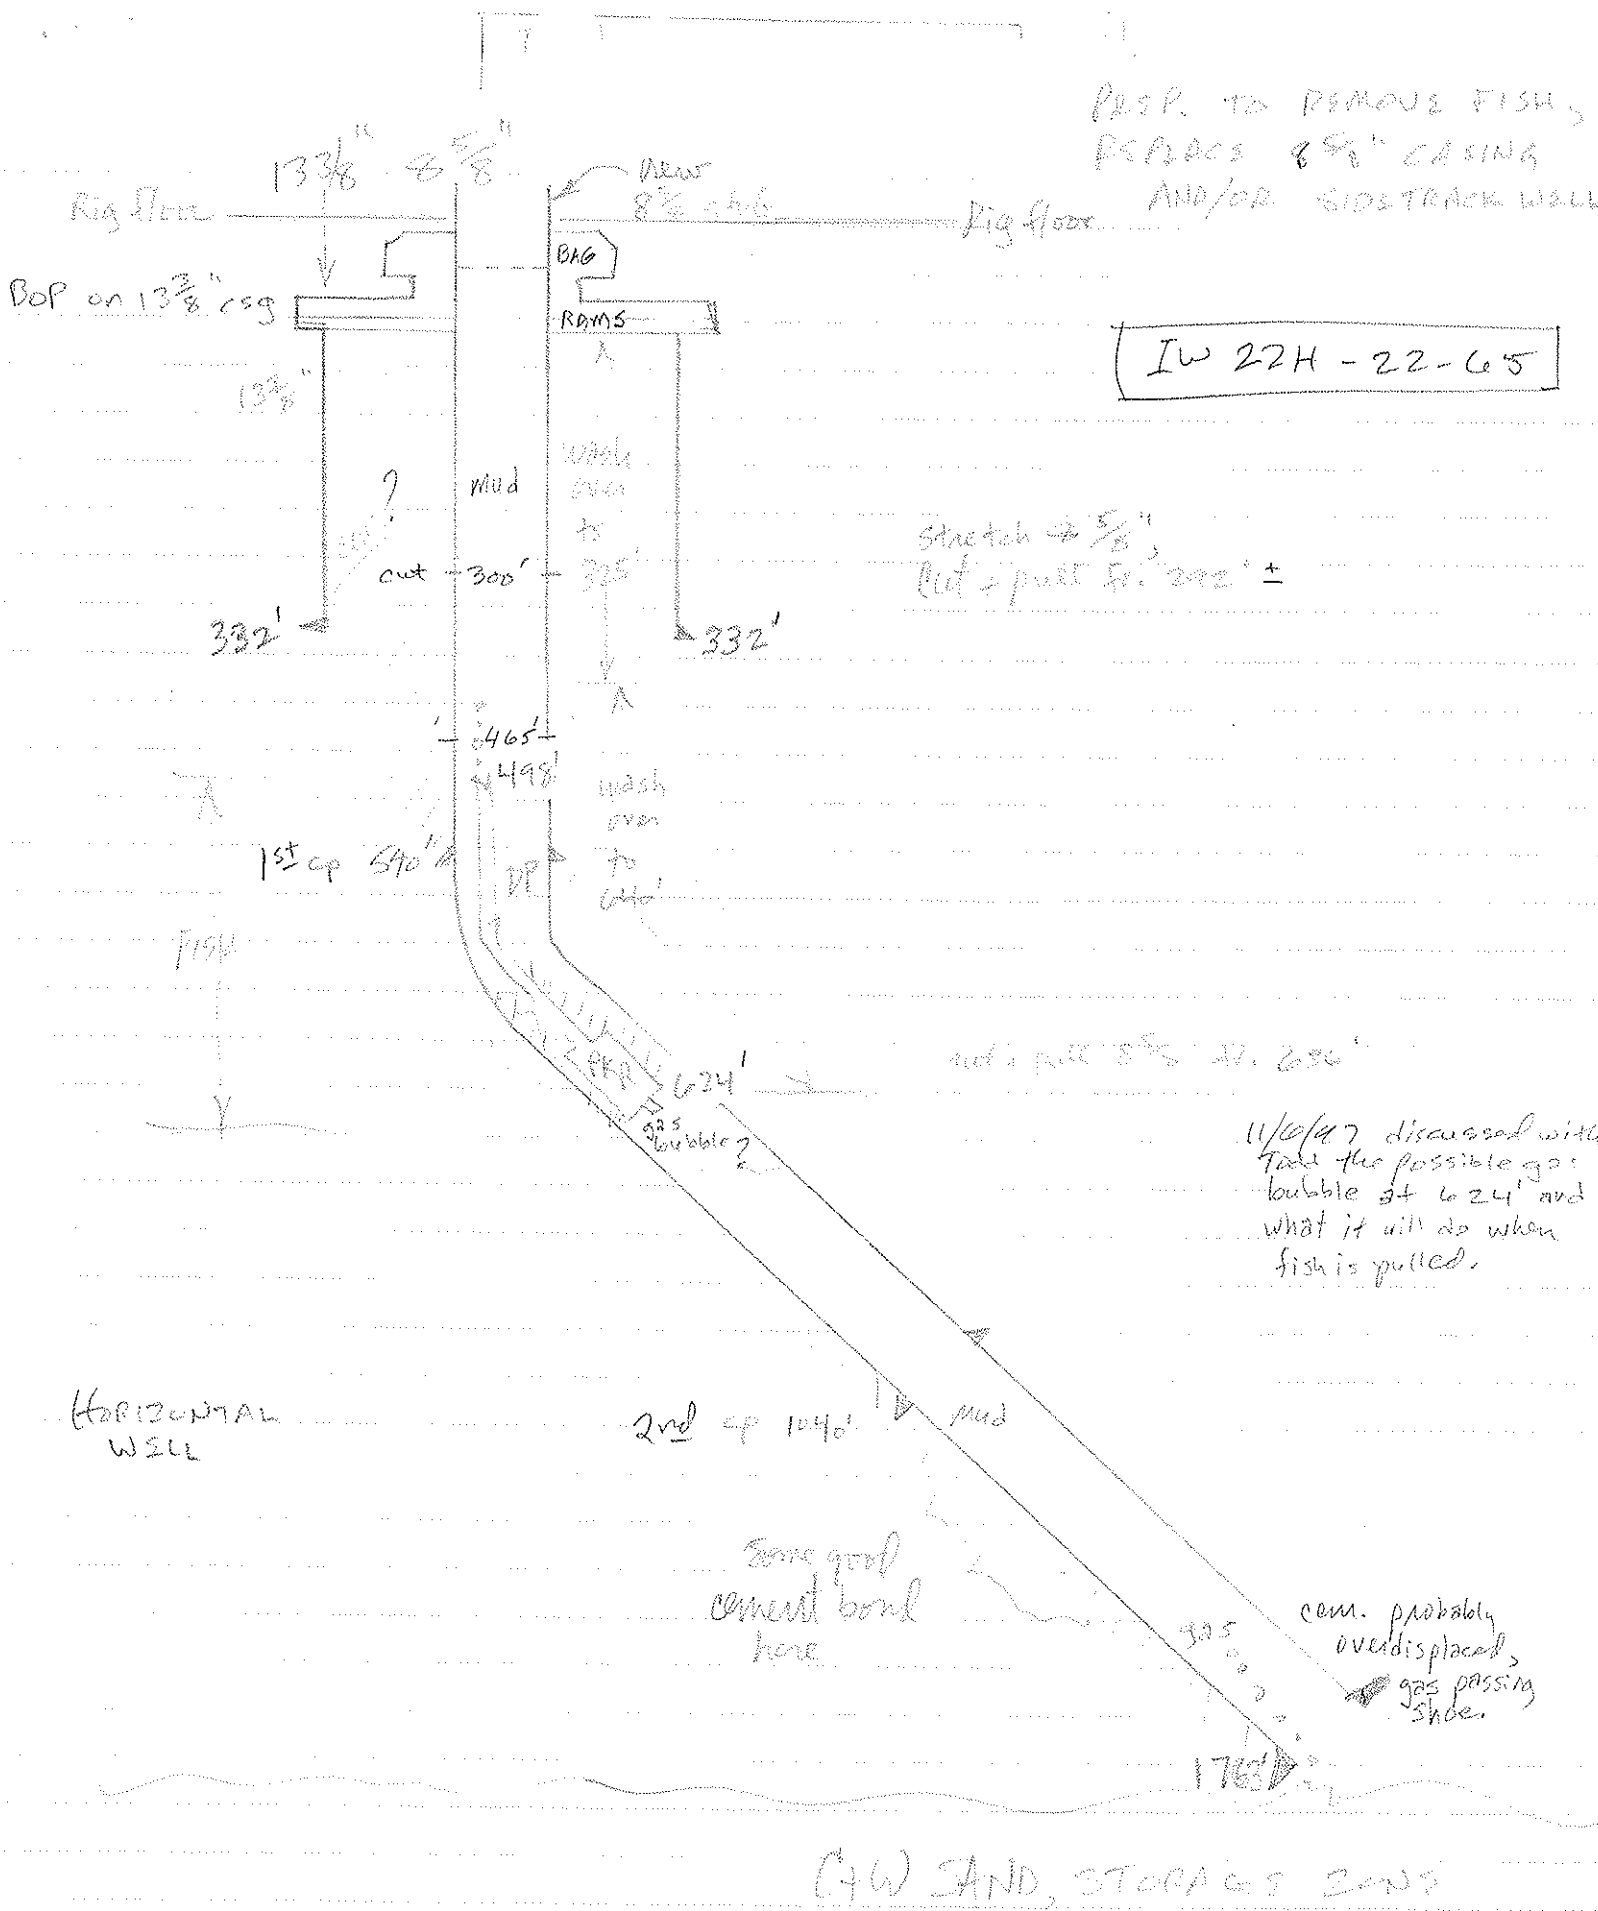 PREP. TO REMOVE FISH,
REPLACE 8 5/8" CASING
AND/OR SIDETRACK WELL
13 3/8" 8 5/8"
new
8 5/8 stub
Rig floor
Rig floor
BAG
BOP on 13 3/8" csg
RAMS
IW 22H-22-65
13 3/8"
?
Mud
wash
over
to
325'
cut 300'
Stretch 8 5/8",
Cut + pull fr. 292' ±
332'
332'
465'
498'
wash
over
to
640'
1st cp 540"
DP
FISH
PKR
624'
pull 8 5/8
gas
bubble?
11/6/97 discussed with
Tom the possible gas
bubble at 624' and
what it will do when
fish is pulled.
HORIZONTAL
WELL
2nd cp 1040'
Mud
Some good
cement bond
here
gas
cem. probably
overdisplaced,
gas passing
shoe.
SAND, STORAGE ZONE